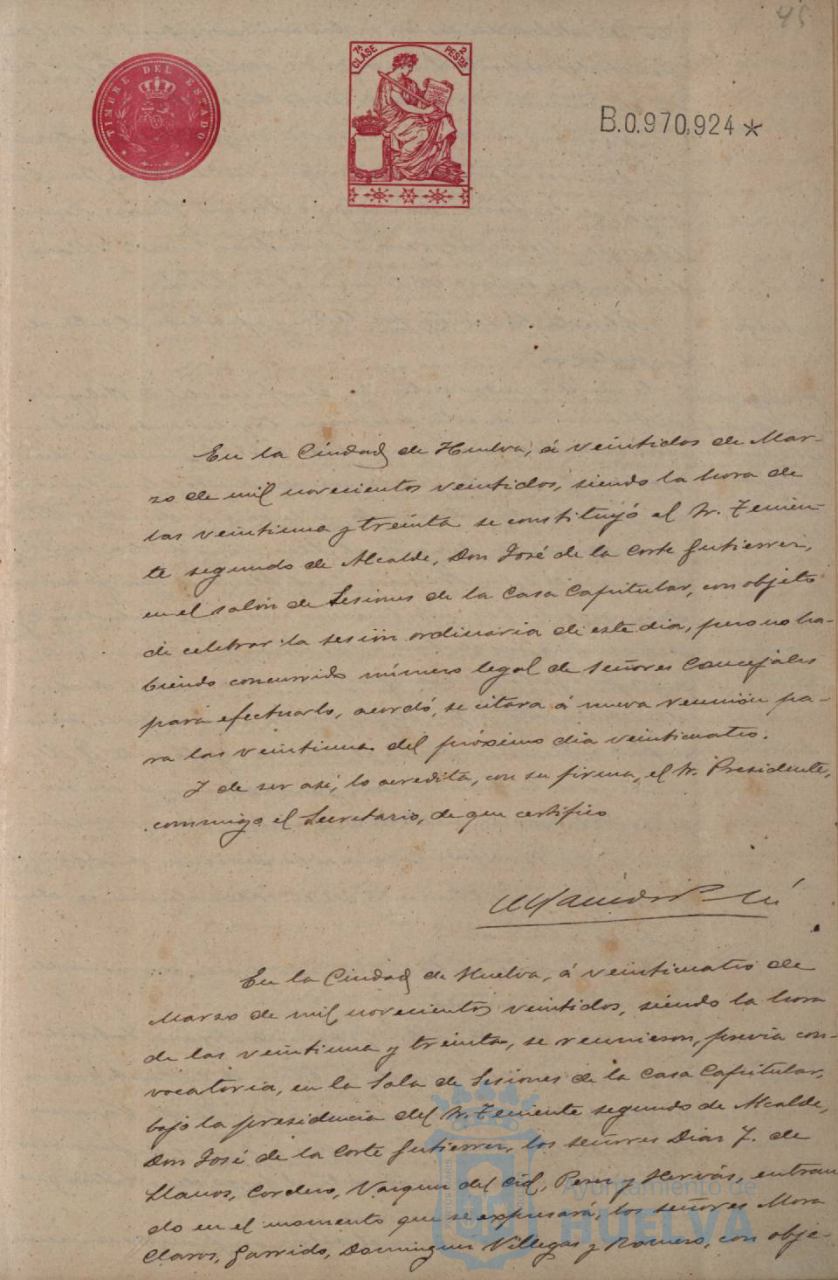 45
TIMBRE DEL ESTADO
7ª CLASE 2 PESTAS
B.0.970,924 *
En la Ciudad de Huelva, á veintidos de Mar-
zo de mil novecientos veintidos, siendo la hora de
las veintiuna y treinta se constituyó el Sr. Tenien-
te segundo de Alcalde, Don José de la Corte Gutierrez,
en el salón de Sesiones de la Casa Capitular, con objeto
de celebrar la sesión ordinaria de este dia, pero no ha-
biendo concurrido número legal de señores Concejales
para efectuarlo, acordó, se citara á nueva reunión pa-
ra las veintiuna del próximo dia veinticuatro.
Y de ser asi, lo acredita, con su firma, el Sr. Presidente,
conmigo el Secretario, de que certifico
En la Ciudad de Huelva, á veinticuatro de
Marzo de mil novecientos veintidos, siendo la hora
de las veintiuna y treinta, se reunieron, previa con-
vocatoria, en la Sala de Sesiones de la Casa Capitular,
bajo la presidencia del Sr. Teniente segundo de Alcalde,
Don José de la Corte Gutierrez, los señores Diaz F. de
Llanos, Cordero, Vazquez del Cid, Perez y Hervás, entran
do en el momento que se expresará, los señores Mora
Claros, Garrido, Dominguez Villegas y Romero, con obje-
Ayuntamiento de
HUELVA